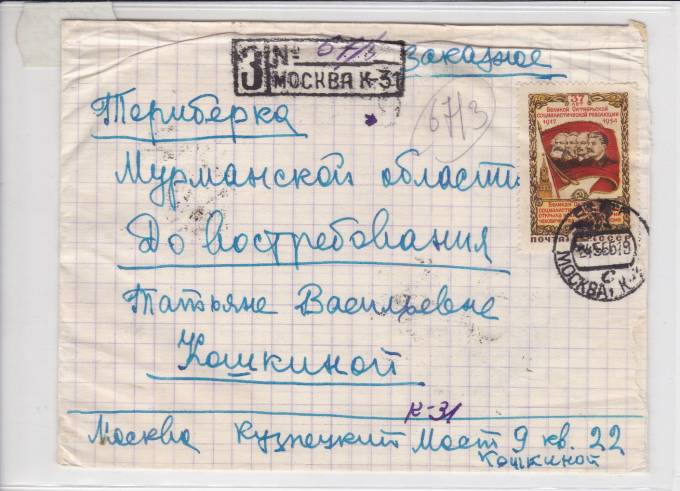 З № 67/3 заказное
МОСКВА К-31
67/3
Териберка
Мурманской области
До востребования
Татьяне Васильевне
Кошкиной
К-31
Москва Кузнецкий Мост 9 кв. 22
Кошкиной
37 ЛЕТ
ВЕЛИКОЙ ОКТЯБРЬСКОЙ
СОЦИАЛИСТИЧЕСКОЙ РЕВОЛЮЦИИ
1917 1954
ВЕЛИКАЯ
СОЦИАЛИСТИ
ОТКРЫЛА
ЧЕЛОВЕЧ
ПОЧТА СССР
МОСКВА, К-